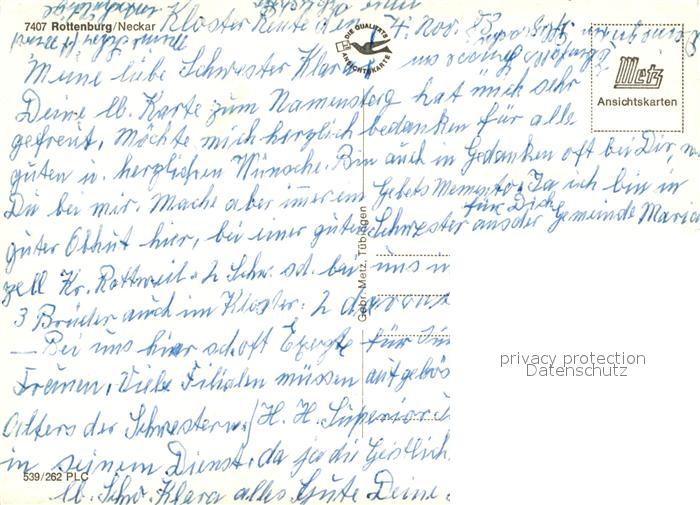 7407 Rottenburg/Neckar
Kloster Reute den 4. Nov. 83
DIE QUALITÄTS ANSICHTSKARTE
Metz
Ansichtskarten
Meine liebe Schwester Klara
Deine lb. Karte zum Namenstag hat mich sehr
gefreut, Möchte mich herzlich bedanken für alle
guten u. herzlichen Wünsche. Bin auch in Gedanken oft bei Dir, u.
Du bei mir. Mache aber immer ein Gebets Memento für Dich. Ja ich bin in
guter Obhut hier, bei einer guten Schwester aus der Gemeinde Maria
zell Kr. Rottweil. 2 Schw. sd. bei uns u
3 Brüder auch im Kloster: 2 davon
— Bei uns hier sd. oft Exerzt für
Frauen, Viele Filialen müssen aufgelös
Alters der Schwestern. H. H. Superior
in seinem Dienst, da ja die Geistlich
lb. Schw. Klara alles Gute Deine
Gebr. Metz, Tübingen
539/262 PLC
privacy protection
Datenschutz